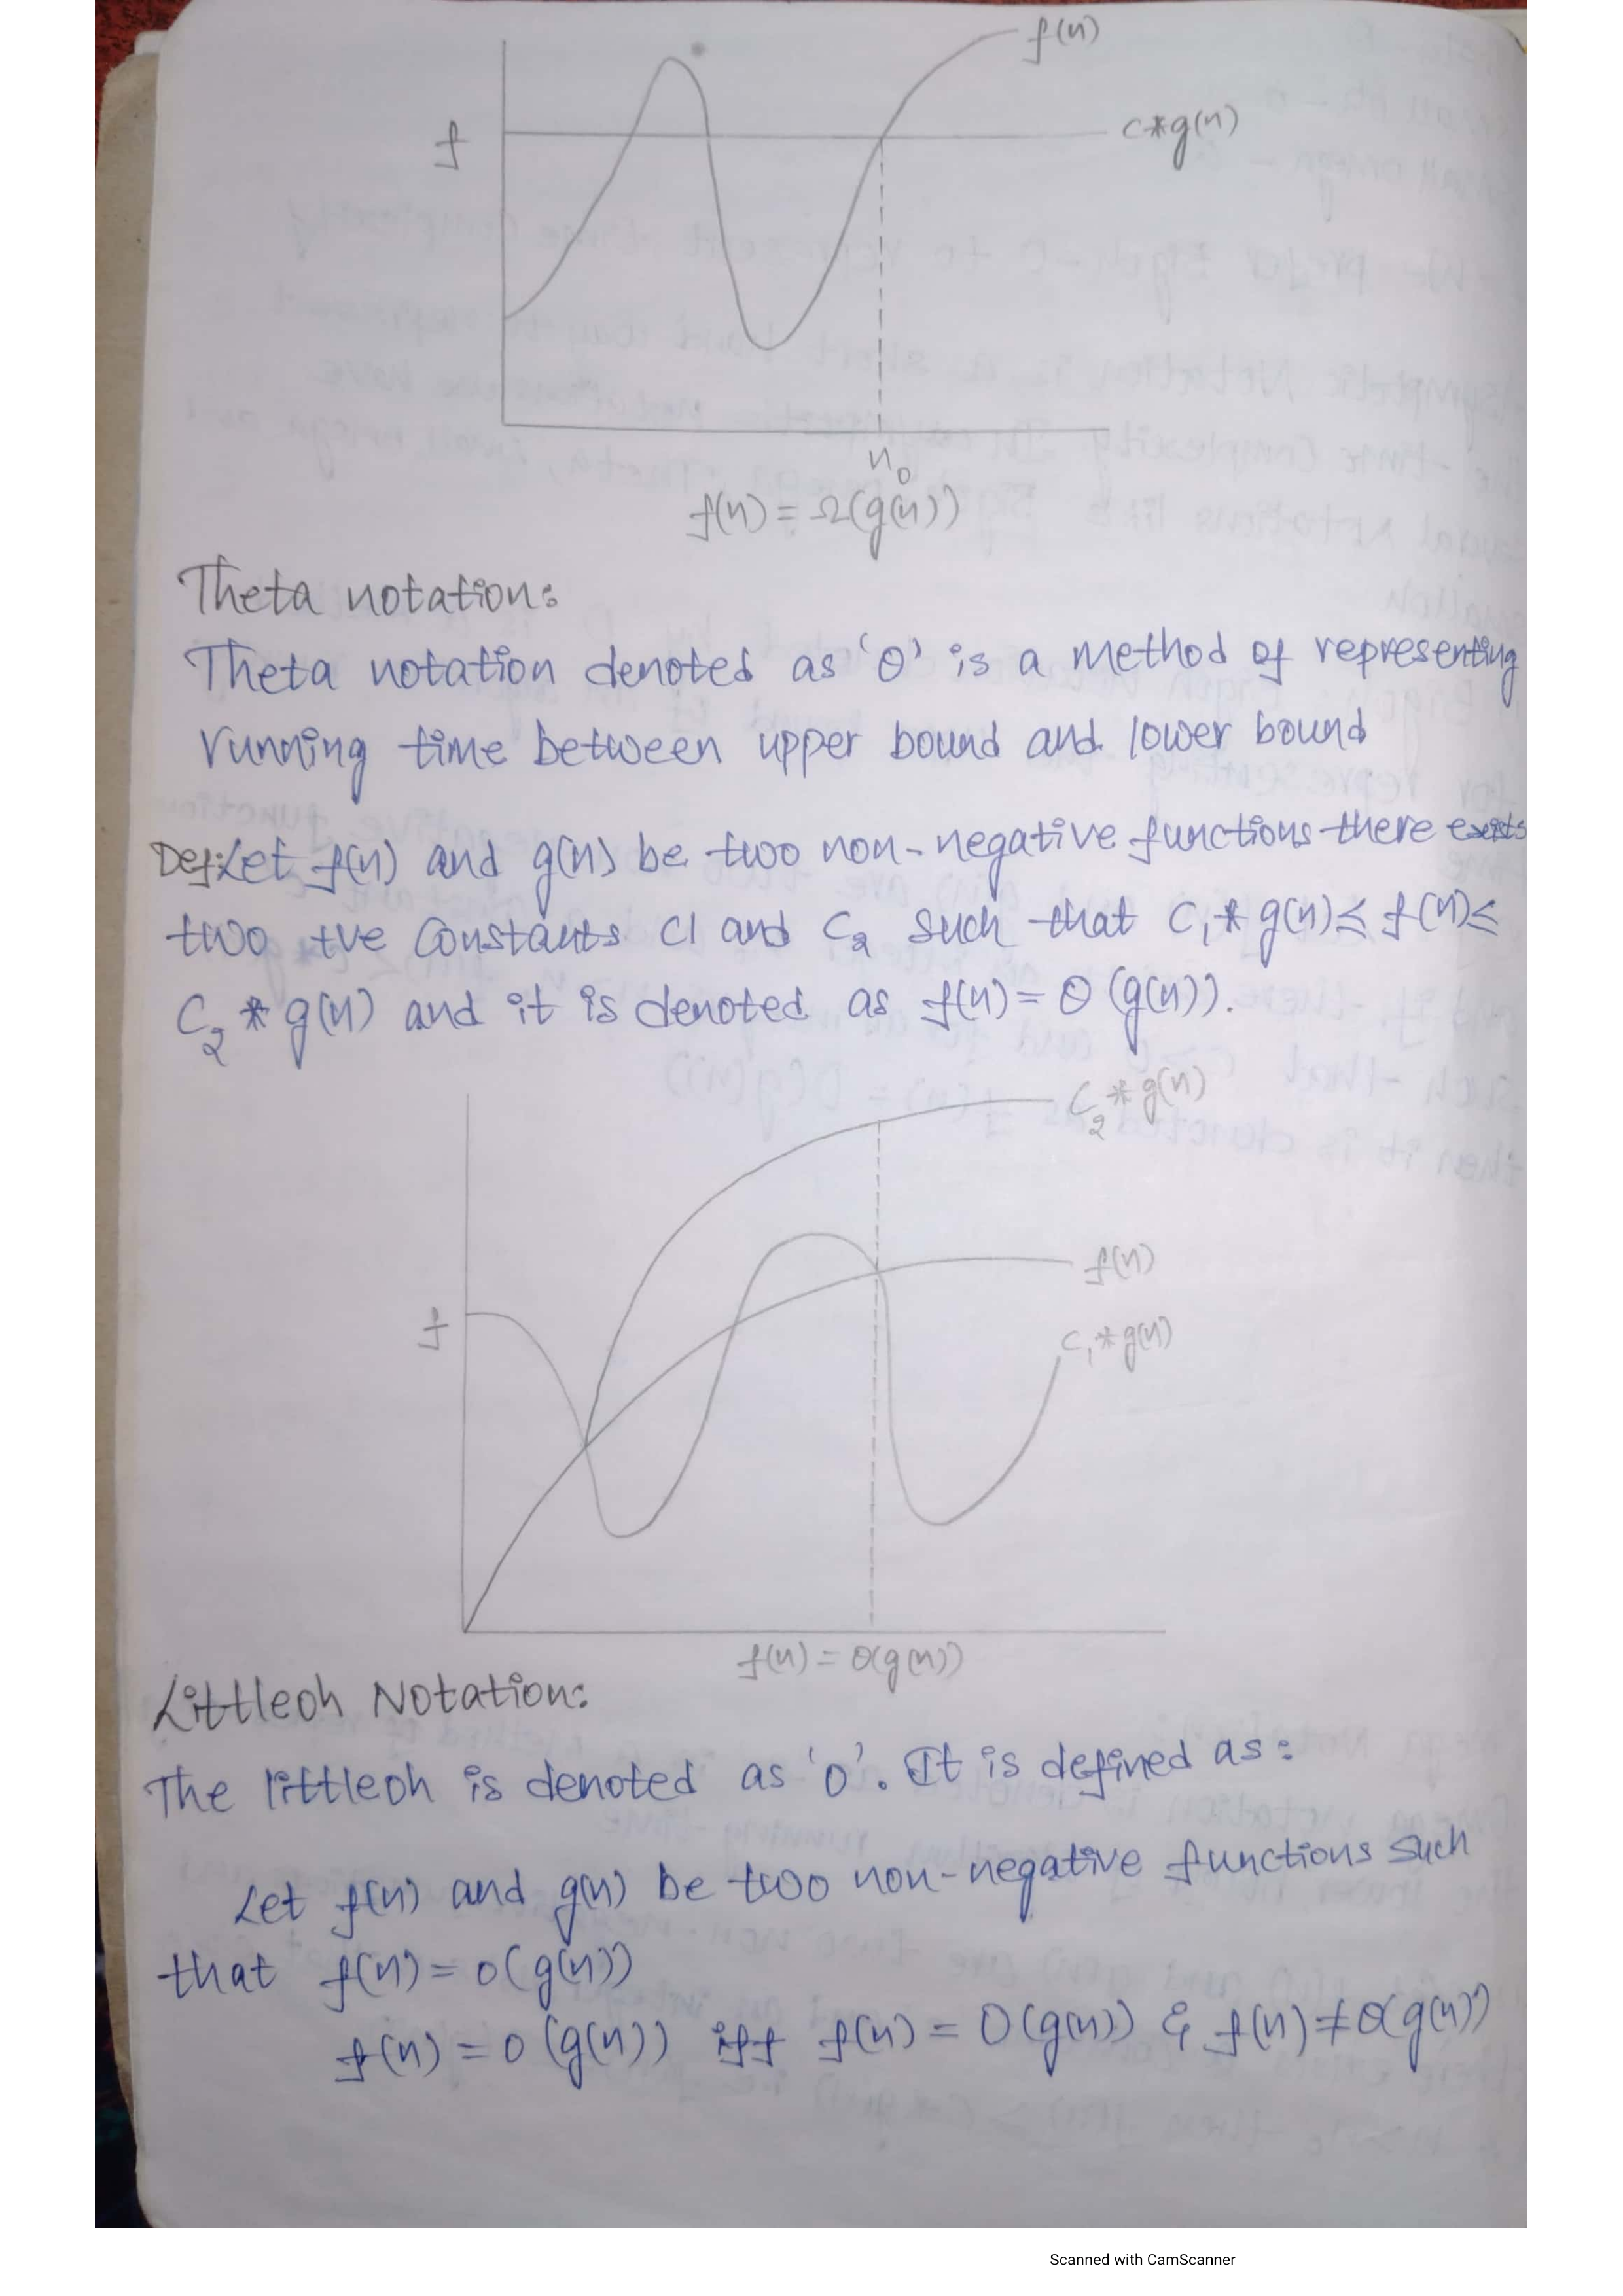 f(n)
c*g(n)
f
n₀
f(n) = Ω(g(n))
Theta notation:
Theta notation denoted as 'Θ' is a method of representing
running time between upper bound and lower bound
Def:Let f(n) and g(n) be two non-negative functions there exists
two +ve Constants C1 and C₂ such that C₁* g(n) ≤ f(n) ≤
C₂ * g(n) and it is denoted as f(n) = Θ (g(n)).
C₂ * g(n)
f(n)
f
C₁* g(n)
f(n) = Θ(g(n))
Littleoh Notation:
The littleoh is denoted as 'o'. It is defined as:
Let f(n) and g(n) be two non-negative functions such
that f(n) = o(g(n))
f(n) = o (g(n)) iff f(n) = O(g(n)) & f(n) ≠ Θ(g(n))
Scanned with CamScanner